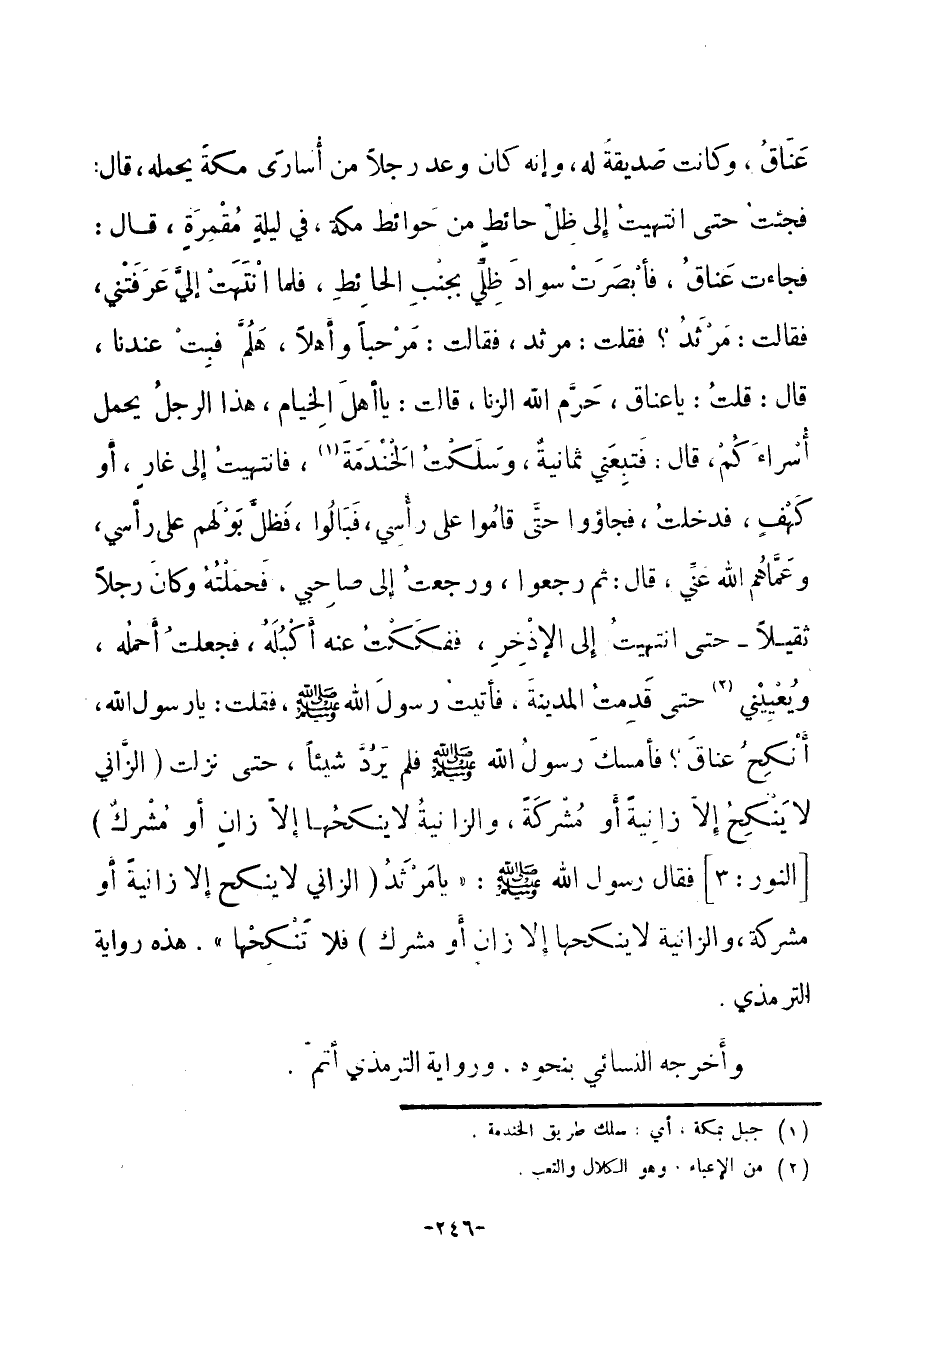 عَنَاقُ ، وكانت صَديقةً له، وإنه كان وعد رجلاً من أُسارَى مكةَ يحمله، قال:
فجئتُ حتى انتهيتُ إلى ظلِّ حائطٍ من حَوائط مكة ، في ليلةٍ مُقْمِرَةٍ ، قال :
فجاءت عَناقُ ، فأبْصَرَتْ سوادَ ظِلِّي بجنْبِ الحائِطِ ، فلما انْتَهَتْ إليَّ عَرَفَتْني،
فقالت : مَرْثَدُ ؟ فقلت : مرثد ، فقالت : مَرْحباً وأهلاً ، هَلُمَّ فبِتْ عندنا ،
قال : قلتُ : ياعناق ، حَرَّم الله الزنا ، قالت : ياأهلَ الخيام ، هذا الرجلُ يحمل
أُسْراءَكُمْ، قال : فَتبِعَني ثمانيةٌ ، وَسلَكْتُ الخَنْدَمَةَ (١) ، فانتهيتُ إلى غارٍ ، أو
كَهْفٍ ، فدخلتُ ، فجاؤوا حتَّى قامُوا على رأْسي، فَبَالُوا ، فَظلَّ بَوْلهم على رأسي،
وعَمَّاهُم الله عَنِّي ، قال : ثم رجعوا ، ورجعتُ إلى صاحِبي ، فَحمَلْتُهُ وكانَ رجلاً
ثقيلاً – حتى انتهيتُ إلى الإذْخِرِ ، ففكَكْتُ عنه أَكْبُلَهُ ، فجعلتُ أحملُه ،
ويُعْيِيْني (٢) حتى قَدِمتُ المدينةَ ، فأتيتُ رسولَ الله ﷺ ، فقلت : يارسول الله،
أَنْكِحُ عناقَ ؟ فأمسكَ رسولُ الله ﷺ فلم يَرُدَّ شيئاً ، حتى نزلت ( الزَّاني
لا يَنْكِحُ إلاّ زانيةً أو مُشْركَةً ، والزانيةُ لاينكحُها إلاّ زانٍ أو مُشْركٌ )
[النور : ٣] فقال رسول الله ﷺ : « يامَرْثَدُ ( الزاني لاينكح إلا زانيةً أو
مشركة ، والزانية لاينكحها إلا زانٍ أو مشرك ) فلا تَنْكِحْها » . هذه رواية
الترمذي .
وأخرجه النسائي بنحوه . ورواية الترمذي أتمّ .
(١) جبل بمكة ، أي : سلك طريق الخندمة .
(٢) من الإعياء ، وهو الكلال والتعب .
-٢٤٦-